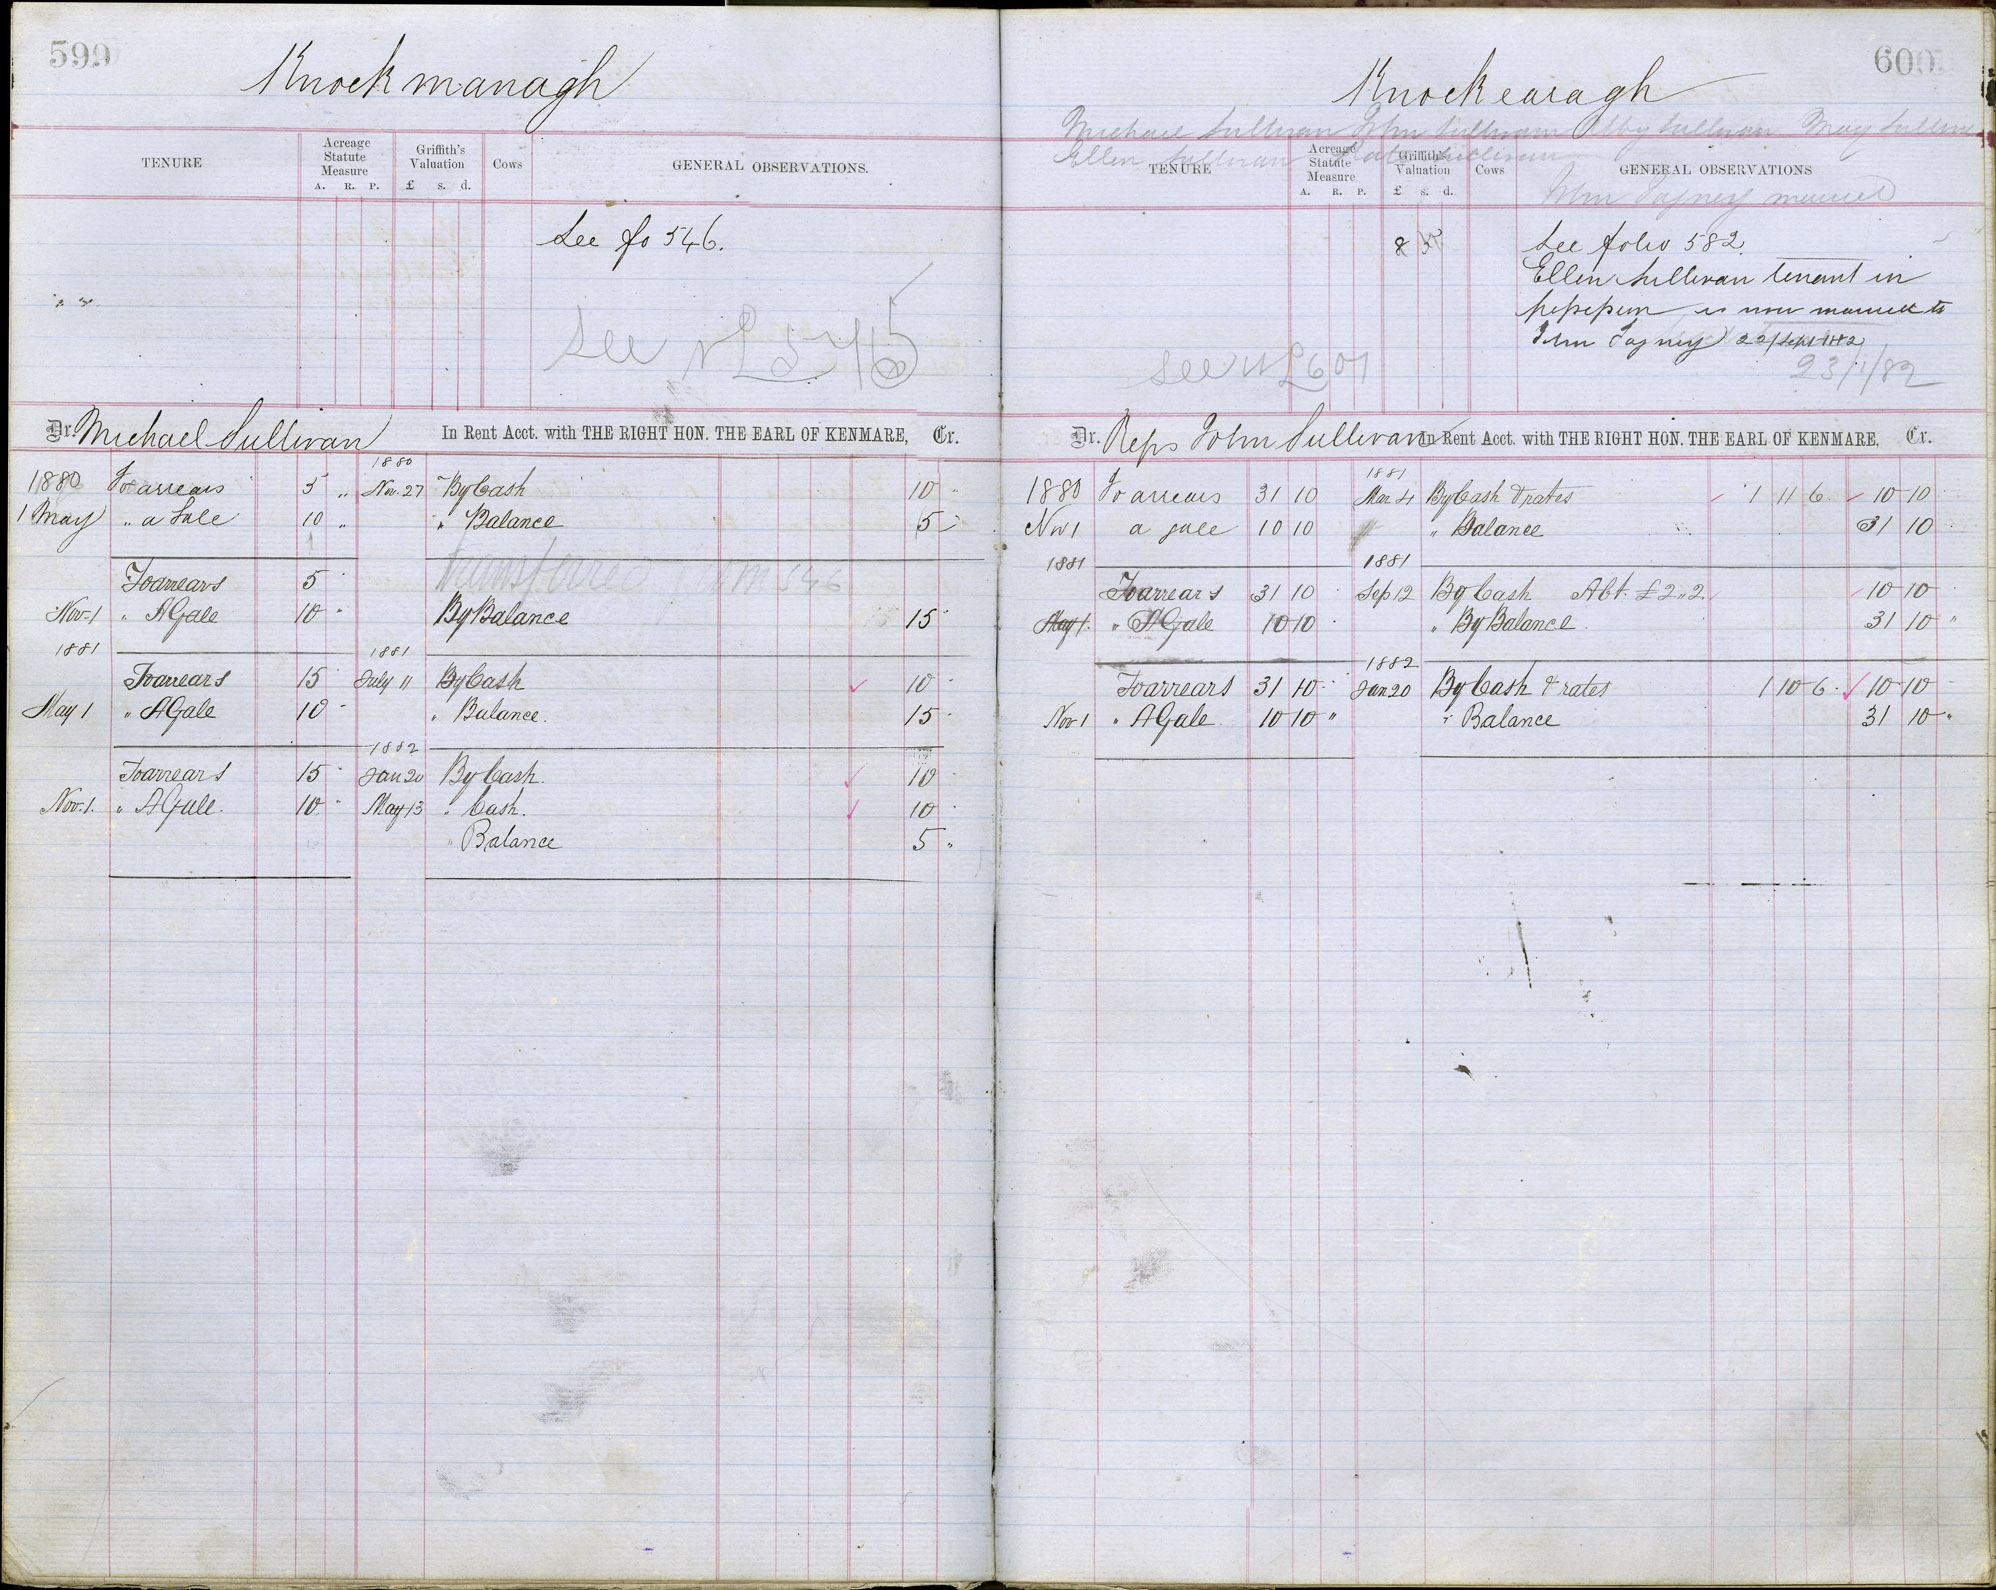 599
Knockmanagh
TENURE
Acreage Statute Measure
A. R. P.
Griffith's Valuation
£ s. d.
Cows
GENERAL OBSERVATIONS.
See fo 546.
See
Dr. Michael Sullivan In Rent Acct. with THE RIGHT HON. THE EARL OF KENMARE, Cr.
1880
1880 To arrears 5 „ Nov. 27 By Cash 10 „
1 May „ a Gale 10 „ „ Balance 5 „
Transferred from 546
To arrears 5
Nov. 1 „ A Gale 10 „ By Balance 15
1881 1881
To arrears 15 July 11 By Cash 10
May 1 „ A Gale 10 „ Balance. 15
1882
To arrears 15 Jan 20 By Cash. 10
Nov. 1. „ A Gale. 10 May 13 „ Cash. 10
„ Balance 5 „
600
Knockearagh
Michael Sullivan John Sullivan Abby Sullivan Mary Sullivan
Ellen Sullivan Kate Sullivan
TENURE
Acreage Statute Measure
A. R. P.
Griffith's Valuation
£ s. d.
Cows
GENERAL OBSERVATIONS
John Tagney married
8 5
See folio 582
Ellen Sullivan tenant in
possession is now married to
John Tagney
23/1/82
See N L 601
Dr. Reps John Sullivan In Rent Acct. with THE RIGHT HON. THE EARL OF KENMARE, Cr.
1881
1880 To arrears 31 10 Mar 4 By Cash & rates 1 11 6 10 10
Nov 1 a gale 10 10 „ Balance 31 10
1881 1881
To arrears 31 10 Sep 12 By Cash Abt. £2„2 10 10
May 1. „ A Gale 10 10 „ By Balance 31 10 „
1882
To arrears 31 10 Jan 20 By Cash & rates 1 10 6 10 10
Nov 1 „ A Gale 10 10 „ „ Balance 31 10 „